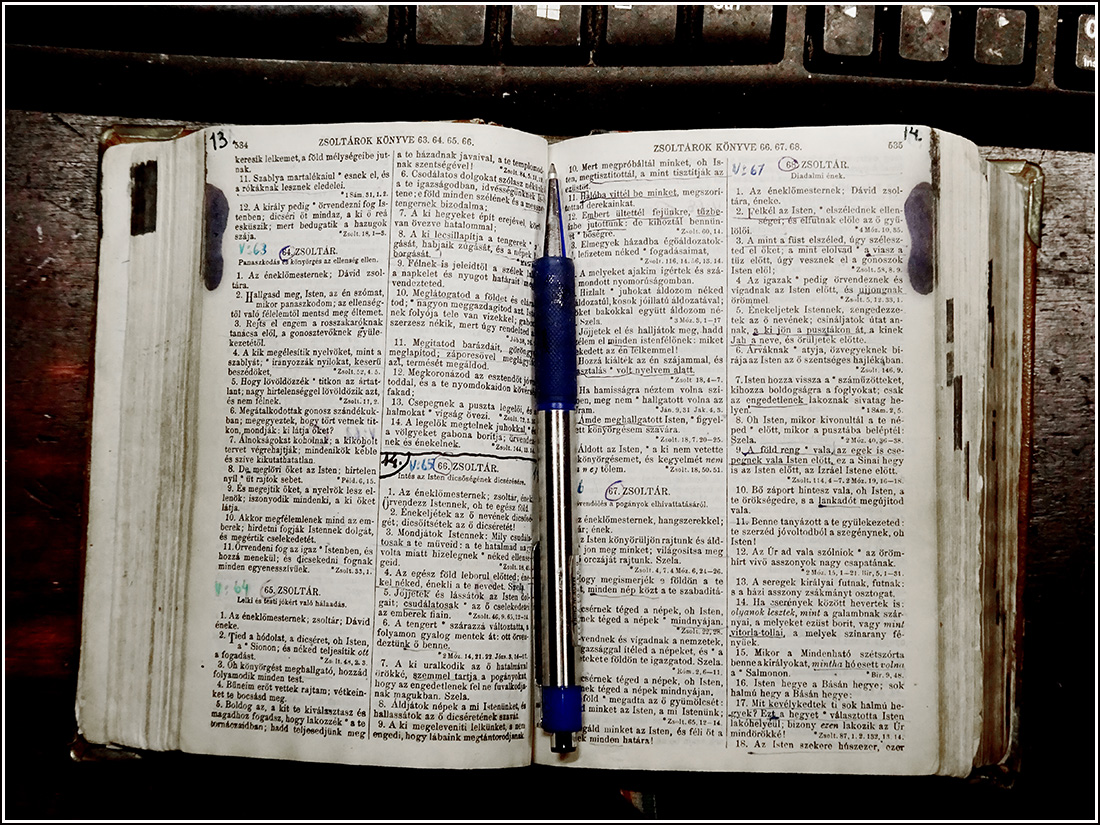 13
534
ZSOLTÁROK KÖNYVE 63. 64. 65. 66.
keresik lelkemet, a föld mélységeibe jut-
nak.
11. Szablya martalékaiul * esnek el, és
a rókáknak lesznek eledelei.
* Sám. 31, 1. 2.
12. A király pedig * örvendezni fog Is-
tenben; dicséri őt mindaz, a ki ő reá
esküszik; mert bedugatik a hazugok
szája.
* Zsolt. 18, 1-3.
V: 63
64. ZSOLTÁR.
Panaszkodás és könyörgés az ellenség ellen.
1. Az éneklőmesternek; Dávid zsol-
tára.
2. Hallgasd meg, Isten, az én szómat,
mikor panaszkodom; az ellenség-
től való félelemtől mentsd meg éltemet.
3. Rejts el engem a rosszakaróknak
tanácsa elől, a gonosztevőknek gyüle-
kezetétől.
4. A kik megélesítik nyelvöket, mint a
szablyát; * irányozzák nyilokat, keserű
beszédöket,
* Zsolt. 52, 4. 5.
5. Hogy lövöldözzék * titkon az ártat-
lant; nagy hirtelenséggel lövöldözik azt,
és nem félnek.
* Zsolt. 11, 2.
6. Megátalkodottak gonosz szándékuk-
ban; megegyeztek, hogy tőrt vetnek tit-
kon, mondják: ki látja őket?
7. Álnokságokat koholnak; a kikoholt
tervet végrehajtják; mindenikök keble
és szíve kikutathatatlan.
8. De meglövi őket az Isten; hirtelen
nyíl * üt rajtok sebet.
* Péld. 6, 15.
9. És megejtik őket, a nyelvök lesz el-
lenök; iszonyodik mindenki, a ki őket
látja.
10. Akkor megfélemlenek mind az em-
berek; hirdetni fogják Istennek dolgát,
és megértik cselekedetét.
11. Örvendeni fog az igaz * Istenben, és
hozzá menekül; és dicsekedni fognak
minden egyenesszívűek.
* Zsolt. 33, 1.
V: 64
65. ZSOLTÁR.
Lelki és testi jókért való hálaadás.
1. Az éneklőmesternek; zsoltár; Dávid
éneke.
2. Tied a hódolat, a dicséret, oh Isten,
a * Sionon; és néked teljesítik ott
a fogadást.
* Zsolt. 48, 2. 3.
3. Óh könyörgést meghallgató, hozzád
folyamodik minden test.
4. Bűneim erőt vettek rajtam; vétkein-
ket te bocsásd meg.
5. Boldog az, a kit te kiválasztasz és
magadhoz fogadsz, hogy lakozzék * a te
tornácaidban; hadd teljesedjünk meg
a te házadnak javaival, a te templomod-
nak szentségével!
6. Csodálatos dolgokat szólasz nékünk
a te igazságodban, idvességünknek Is-
tene; e föld minden szélének és a messze
tengernek bizodalma;
7. A ki hegyeket épít erejével, körül
van övezve hatalommal;
8. A ki lecsillapítja a tengerek *
gását, habjaik zúgását, és a népek
borgását.
9. Félnek is jeleidtől a szélek
a napkelet és nyugot határait
vendezteted.
10. Meglátogatod a földet és
tod; * nagyon meggazdagítod azt. Is-
nek folyója tele van vizekkel;
szerzesz nékik, mert úgy rendelted
11. Megitatod barázdáit,
meglapítod; záporesővel
azt, termését megáldod.
12. Megkoronázod az esztendőt
toddal, és a te nyomdokaidon kövérség
fakad;
13. Csepegnek a puszta legelői, és
halmokat * vígság övezi.
14. A legelők megtelnek juhokkal,
a völgyeket gabona borítja;
nek és énekelnek.
14.
V: 65
66. ZSOLTÁR.
Intés az Isten dicsőségének dicséretére.
1. Az éneklőmesternek; zsoltár, ének
Örvendezz Istennek, oh te egész föld.
2. Énekeljétek az ő nevének dicső-
gét; dicsőítsétek az ő dicséretét!
3. Mondjátok Istennek: Mily csudála-
tosak a te műveid: a te hatalmad nagy
volta miatt hízelegnek * néked ellensé-
geid.
4. Az egész föld leborul előtted;
kel néked, énekli a te nevedet. Szela.
5. Jőjjetek és lássátok az Isten dol-
gait; csudálatosak * az ő cselekedetei
az emberek fiain.
6. A tengert * szárazzá változtatta,
folyamon gyalog mentek át: ott örven-
deztünk ő benne.
* 2 Móz. 14, 21. 22. Józs. 3, 14-17.
7. A ki uralkodik az ő hatalmával
örökké, szemmel tartja a pogányokat,
hogy az engedetlenek fel ne fuvalkodja-
nak magukban. Szela.
8. Áldjátok népek a mi Istenünket, és
hallassátok az ő dicséretének szavát
9. A ki megeleveníti lelkünket,
engedi, hogy lábaink megtántorodjanak.
ZSOLTÁROK KÖNYVE 66. 67. 68.
535
14.
10. Mert megpróbáltál minket, oh Is-
ten, megtisztítottál, a mint tisztítják az
ezüstöt.
11. Hálóba vittél be minket, megszorí-
tottad derekainkat.
12. Embert ültettél fejünkre, tűzbe-
vízbe jutottunk: de kihoztál bennün-
* bőségre.
* Zsolt. 60, 14.
13. Elmegyek házadba égőáldozatok-
lefizetem néked * fogadásaimat,
* Zsolt. 116, 14. 16. 13. 14.
A melyeket ajakim ígértek és szá-
mondott nyomorúságomban.
Hizlalt * juhokat áldozom néked
áldozatúl, kosok jóillatú áldozatával;
bakokkal együtt áldozom né-
Szela.
* 3 Móz. 1, 1-17
Jőjjetek el és halljátok meg, hadd
beszélem el minden istenfélőnek: miket
cselekedett az én lelkemmel!
Hozzá kiálték az én szájammal, és
magasztalás * volt nyelvem alatt.
* Zsolt. 18, 4-7.
Ha hamisságra néztem volna szí-
meg nem * hallgatott volna az
Úram.
* Ján. 9, 31. Jak. 4, 3.
Ámde meghallgatott Isten, * figyel-
könyörgésem szavára.
* Zsolt. 18, 7. 20-25.
Áldott az Isten, * a ki nem vetette
könyörgésemet, és kegyelmét nem
tőlem.
* Zsolt. 18, 50. 51.
67. ZSOLTÁR.
a pogányok elhivattatásáról.
éneklőmesternek, hangszerekkel;
zsoltár; ének.
Isten könyörüljön rajtunk és áld-
jon meg minket; világosítsa meg
orczáját rajtunk. Szela.
* Zsolt. 4, 7. 4 Móz. 6, 24-26.
Hogy megismerjék e földön a te
minden nép közt a te szabadítá-
Dicsérnek téged a népek, oh Isten,
dicsérnek téged a népek * mindnyájan.
* Zsolt. 22, 28.
Örvendnek és vígadnak a nemzetek,
igazsággal ítéled a népeket, és * a
nemzeteket e földön te igazgatod. Szela.
* Róm. 2, 6-11.
Dicsérnek téged a népek, oh Isten,
dicsérnek téged a népek mindnyájan.
föld * megadta az ő gyümölcsét:
minket az Isten, a mi Istenünk;
* Zsolt. 65, 12-14.
Megáld minket az Isten, és féli őt a
földnek minden határa!
V: 67
68. ZSOLTÁR.
Diadalmi ének.
1. Az éneklőmesternek; Dávid zsol-
tára, éneke.
2. Felkél az Isten, * elszélednek ellen-
ségei; és elfutnak előle az ő gyű-
lölői.
* 4 Móz. 10, 35.
3. A mint a füst elszéled, úgy szélesz-
ted el őket; a mint elolvad * a viasz a
tűz előtt, úgy vesznek el a gonoszok
Isten elől;
* Zsolt. 58, 8. 9.
4. Az igazak * pedig örvendeznek és
vígadnak az Isten előtt, és ujjongnak
örömmel
* Zsolt. 5, 12. 33, 1.
5. Énekeljetek Istennek, zengedezze-
tek az ő nevének; csináljatok útat an-
nak, a ki jön a pusztákon át, a kinek
Jah a neve, és örüljetek előtte.
6. Árváknak * atyja, özvegyeknek bí-
rája az Isten az ő szentséges hajlékában.
* Zsolt. 146, 9.
7. Isten hozza vissza a * száműzötteket,
kihozza boldogságra a foglyokat; csak
az engedetlenek lakoznak sivatag he-
lyen.
* 1 Sám. 2, 5.
8. Oh Isten, mikor kivonultál a te né-
ped * előtt, mikor a pusztába beléptél:
Szela.
* 2 Móz. 40, 36-38.
9. A föld reng * vala, az egek is cse-
pegnek vala Isten előtt, ez a Sinai hegy
is az Isten előtt, az Izráel Istene előtt.
* Zsolt. 114, 4-7. 2 Móz. 19, 16-18.
10. Bő záport hintesz vala, oh Isten, a
te örökségedre, s a lankadót megújítod
vala.
11. Benne tanyázott a te gyülekezeted:
te szerzéd jóvoltodból a szegénynek, oh
Isten!
12. Az Úr ad vala szólniok * az öröm-
hírt vivő asszonyok nagy csapatának.
* 2 Móz. 15, 1-21. Bir. 5, 1-31.
13. A seregek királyai futnak, futnak:
s a házi asszony zsákmányt osztogat.
14. Ha cserények között hevertek is:
olyanok lesztek, mint a galambnak szár-
nyai, a melyeket ezüst borít, vagy mint
vitorla-tollai, a melyek színarany fé-
nyűek.
15. Mikor a Mindenható szétszórta
benne a királyokat, mintha hó esett volna
a * Salmonon.
* Bir. 9, 48.
16. Isten hegye a Básán hegye; sok
halmú hegy a Básán hegye:
17. Mit kevélykedtek ti sok halmú he-
gyek? Ezt a hegyet * választotta Isten
lakóhelyéül; bizony ezen lakozik az Úr
mindörökké!
* Zsolt. 87, 1. 2. 132, 13. 14.
18. Az Isten szekere húszezer, ezer